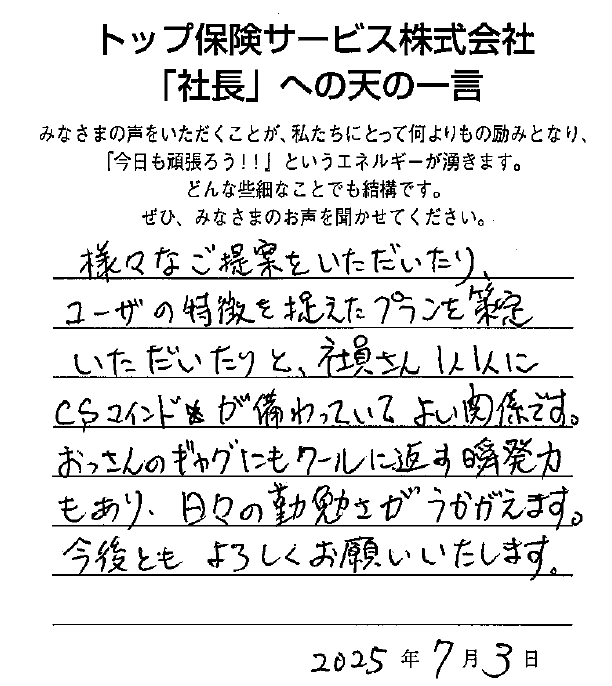 トップ保険サービス株式会社
「社長」への天の一言
みなさまの声をいただくことが、私たちにとって何よりもの励みとなり、
『今日も頑張ろう！！』というエネルギーが湧きます。
どんな些細なことでも結構です。
ぜひ、みなさまのお声を聞かせてください。
様々なご提案をいただいたり、
ユーザの特徴を捉えたプランを策定
いただいたりと、社員さん1人1人に
CSマインドが備わっていてよい関係です。
おっさんのギャグにもクールに返す瞬発力
もあり、日々の勤勉さがうかがえます。
今後ともよろしくお願いいたします。
2025年7月3日